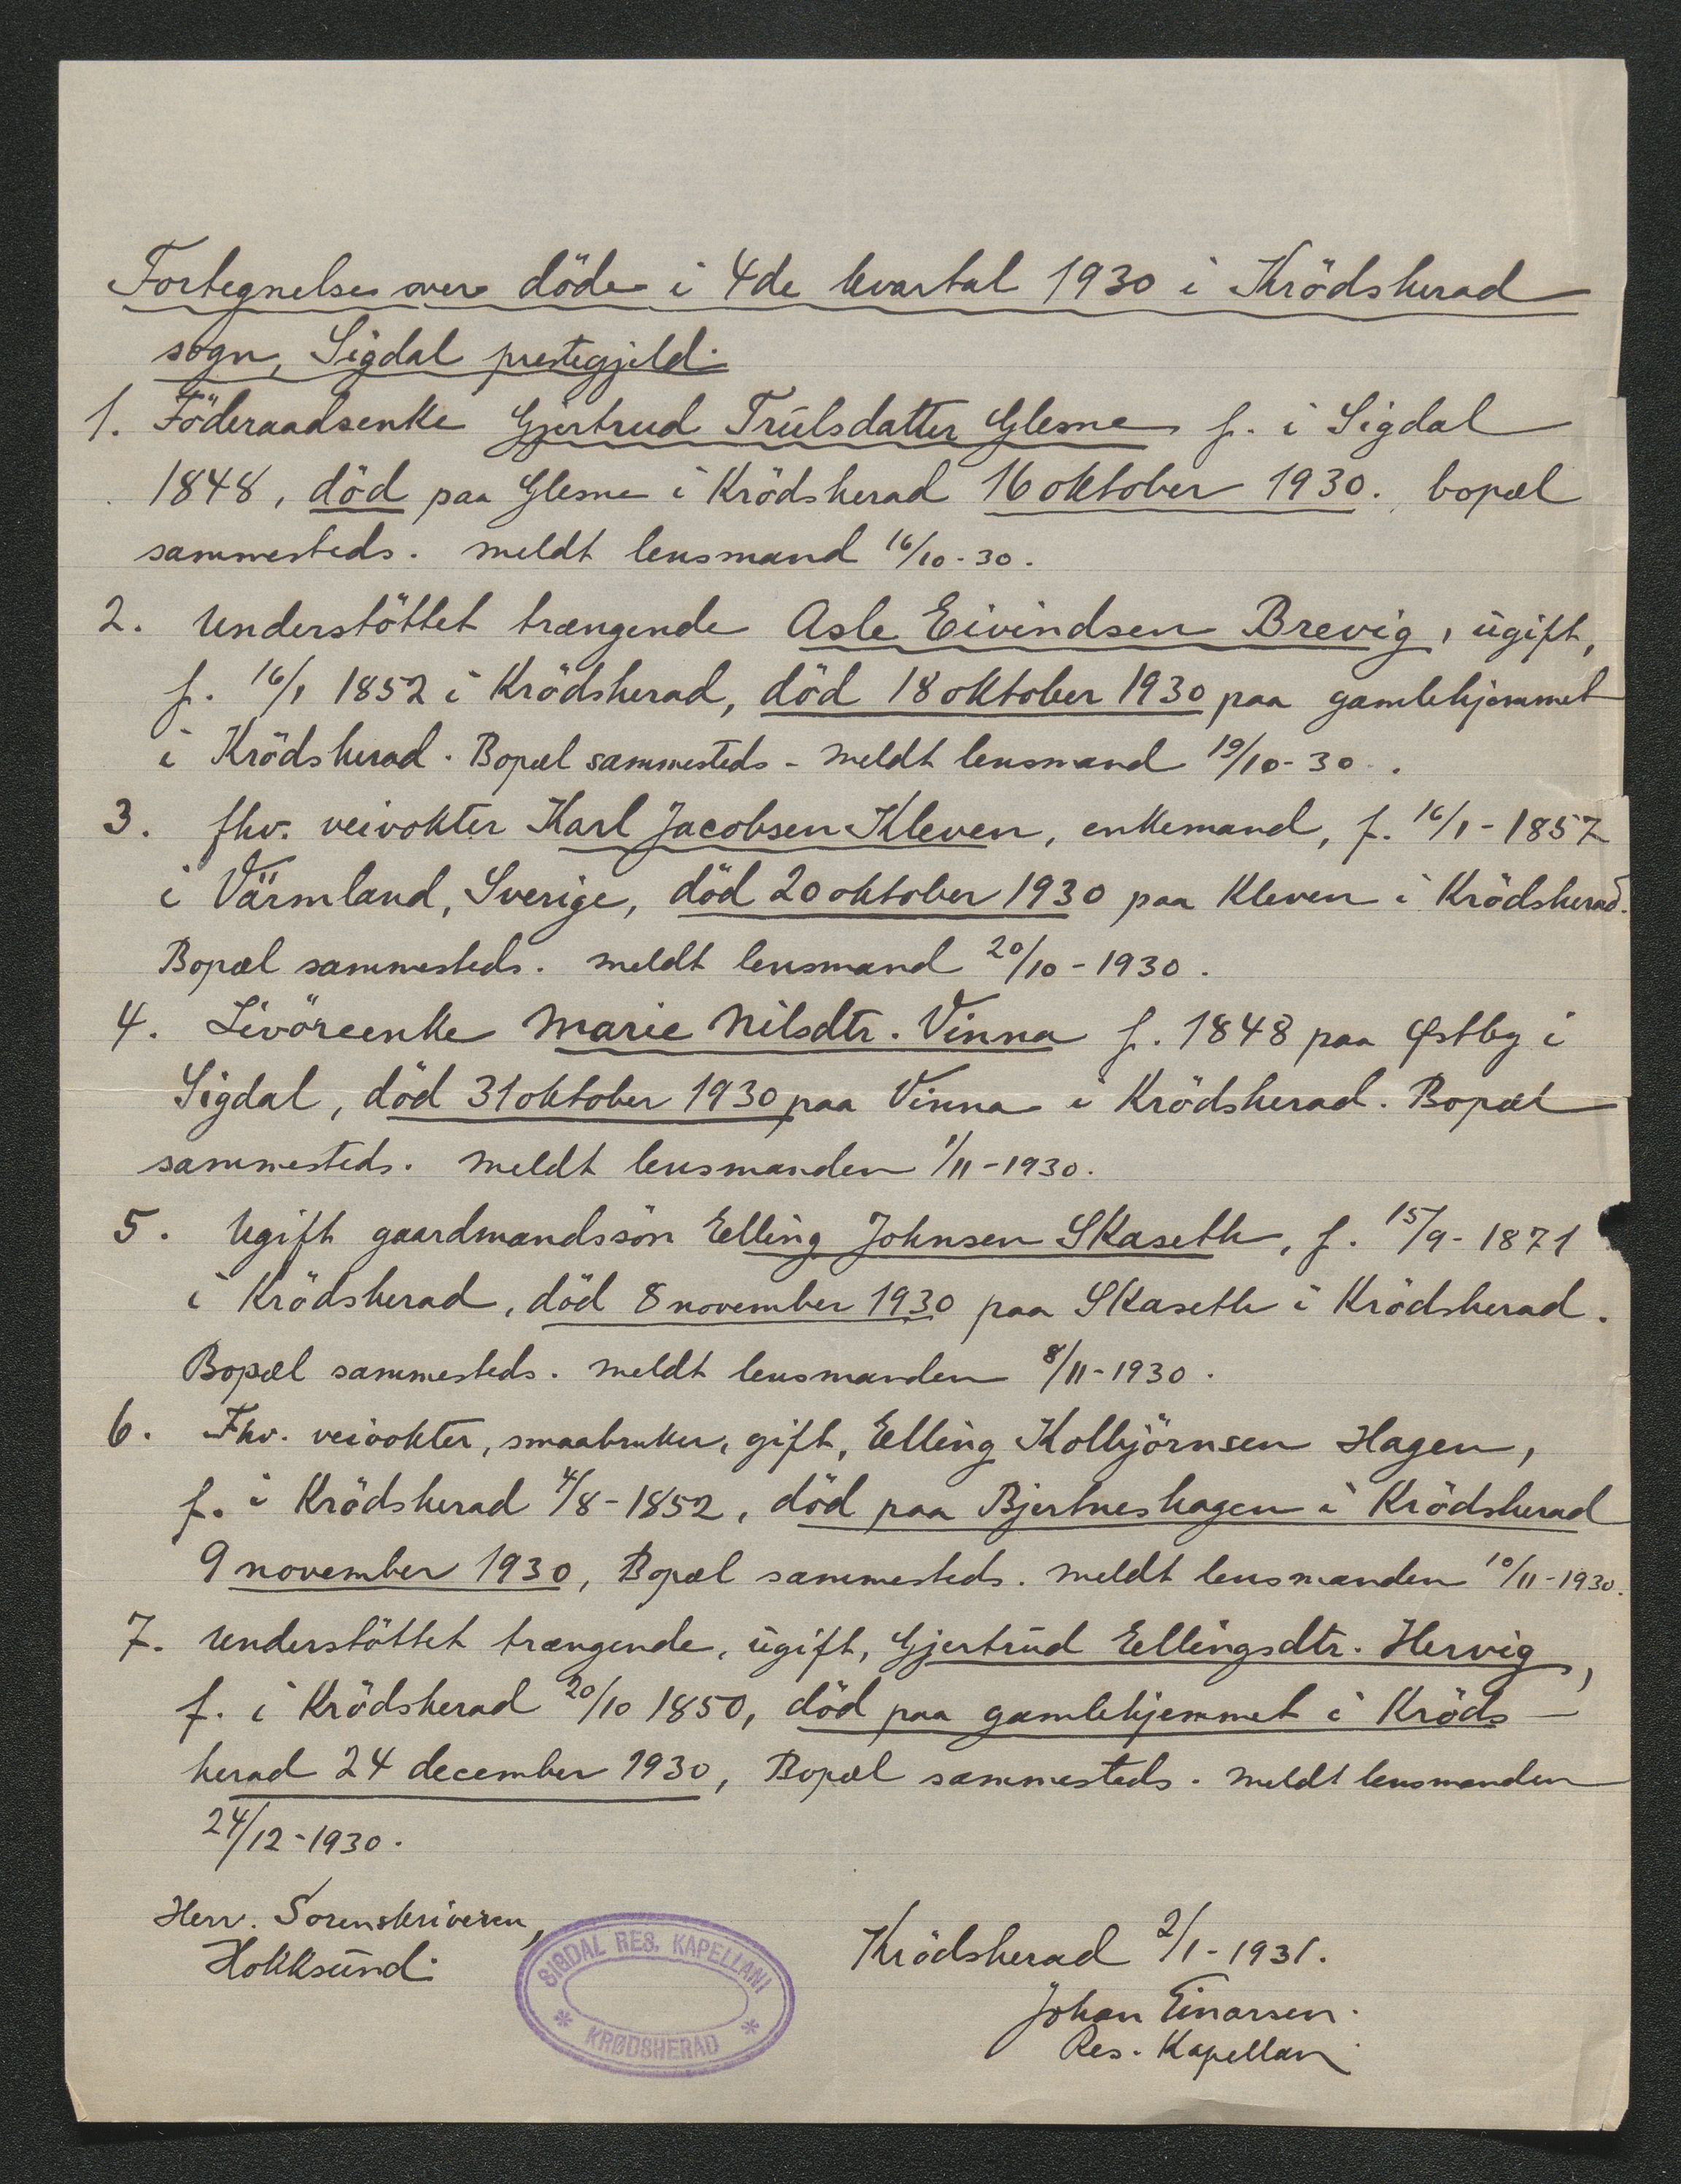 Fortegnelse over döde i 4de kvartal 1930 i Krödsherad
sogn, Sigdal prestegjeld.
1. Föderaadsenke Gjertrud Trulsdatter Glesne f. i Sigdal
1848, död paa Glesne i Krödsherad 16 oktober 1930. bopæl
sammesteds. meldt lensmand 16/10-30.
2. Understöttet trængende Asle Eivindsen Brevig, ugift,
f. 16/1 1852 i Krödsherad, död 18 oktober 1930 paa gamlehjemmet
i Krödsherad. Bopæl sammesteds - meldt lensmand 19/10-30.
3. fhv. veivokter Karl Jacobsen Kleven, enkemand, f. 16/1-1857
i Värmland, Sverige, död 20 oktober 1930 paa Kleven i Krödsherad.
Bopæl sammesteds. meldt lensmand 20/10-1930.
4. Livöreenke Marie Nilsdtr. Vinna f. 1848 paa Østby i
Sigdal, död 31 oktober 1930 paa Vinna i Krödsherad. Bopæl
sammesteds. meldt lensmanden 1/11-1930.
5. Ugift gaardmandssön Elling Johnsen Skaseth, f. 15/9-1871
i Krödsherad, död 8 november 1930 paa Skaseth i Krödsherad.
Bopæl sammesteds. meldt lensmanden 8/11-1930.
6. Fhv. veivokter, smaabruker, gift, Elling Kolbjörnsen Hagen,
f. i Krödsherad 4/8-1852, död paa Bjertneshagen i Krödsherad
9 november 1930, Bopæl sammesteds. meldt lensmanden 10/11-1930.
7. Understöttet trængende, ugift, Gjertrud Ellingsdtr. Hervig,
f. i Krödsherad 20/10 1850, död paa gamlehjemmet i Kröds-
herad 24 december 1930, Bopæl sammesteds. meldt lensmanden
24/12-1930.
Herr. Sorenskriveren,
Hokksund.
SIGDAL RES. KAPELLANI
* KRØDSHERAD *
Krödsherad 2/1-1931.
Johan Einarsen.
Res. Kapellan